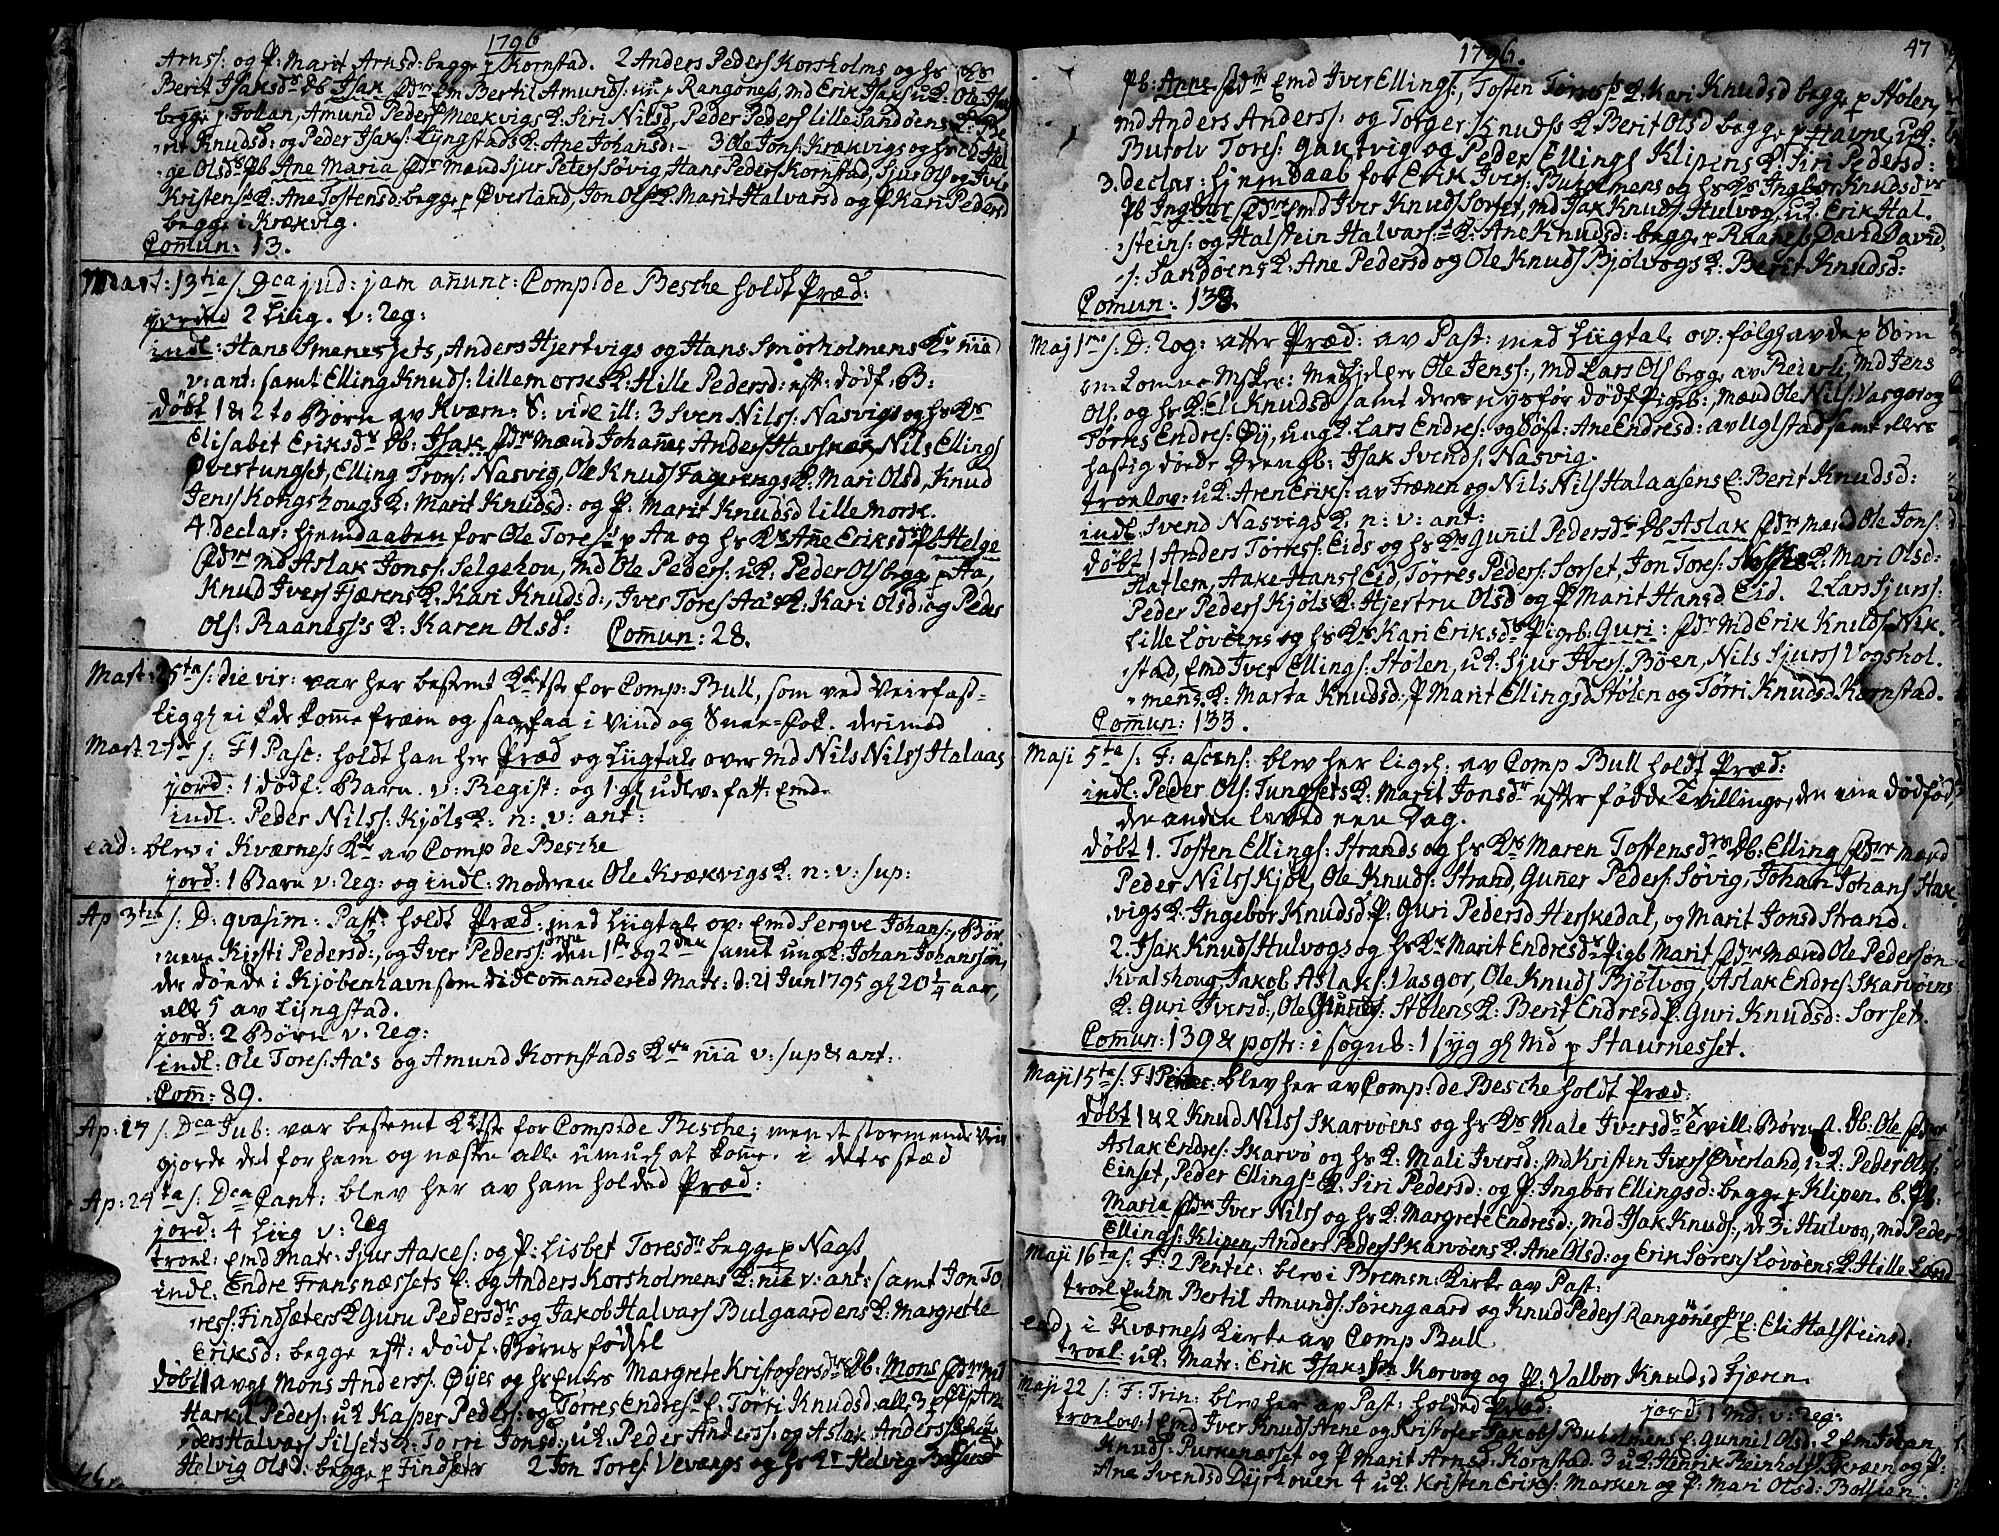 1796
Arnss: og P: Marit Arnsd: begge p Kornstad. 2 Anders Peders Korsholms og hs
Berit Isaksd Db Isak Fdre Em Bertil Amunds: p Rangones, Md Erik Isaks uk: Ole
begge p Follan, Amund Peders Meekvigs K: Siri Nilsd, Peder Peders lille Sandøens
Knudsd: og Peder Isaks: Liingstads K: Ane Johansd: - 3 Ole Jons: Krækvigs og hs
ge Olsds Pb Ane Maria Fdre Mænd Sjur Peters Søvig, Hans Peders Kornstad, Sjur Ols og Iver
Kristens K: Ane Tostensd: begge p Øverland, Jon Ols K: Marit Halvarsd og P Kari Pedersd
begge i Krækvig.
Com̄un: 13.
Mart: 13tia s. Dca jud: jam an̄unc: Comp: de Besche holdt Præd:
jorded 2 Liig. v: Reg:
indl: Hans Smenessets, Anders Hjertvigs og Hans Smørholmens Kr nia
v: ant: samt Elling Knuds: lillemorks K: Hille Pedersd: eft: dødf: B:
døbt 1 & 2 to Børn av Kværn: S: vide ill: 3 Sven Nilss: Nasvigs og hs Ks
Elisabet Eriksds Db: Isak Fdre Mænd Johan̄es Anders Havsnæs, Nils Ellings
Øvertungset, Elling Trons: Nasvig, Ole Knuds Fagerengs K: Mari Olsd, Knud
Jens Kongshougs K: Marit Knudsd: og P: Marit Knudsd lille Mork.
4 Declar: hjemdaaben for Ole Tores: p Aa og hs Ks An̄e Eriksds Pb Helge
Fdre Md Aslak Jons: Selgehou, Md Ole Peders: uk: Peder Ols begge p Aa,
Knud Ivers Fjærens K: Kari Knudsd:, Iver Tores Aa's K: Kari Olsd: og Peder
Ols: Raaness's K: Karen Olsd: Com̄un: 28.
Mart: 25ta s: die vir: var her bestemt Krtste for Comp: Bull, som ved Veirfast-
ligh ei kde kom̄e fræm og saa faa i Vind og Snee-fok. derimod
Mart 27de s. F 1 Pasc: holdt han her Præd og Liigtale over Md Nils Nilss Halaas
jord: 1 dødf: Barn. v: Regist: og 1 gl udlev: fatt: Emd.
indl: Peder Nilss: Kjøls K: n: v: ant:
ead: blev i Kværness Krk av Comp de Besche
jord: 1 Barn v: Reg: og indl: moderen Ole Krækvigs K: n: v: sup:
Ap 3tia s: D: qvasim: Past: holdt Præd: med Liigtale ov: Emd Sergve Johans:, Bør
nene Kirsti Pedersd:, og Iver Peders: den 1ste og 2den samt ungk: Johan Johanssøn,
der døde i Kjøbenhavn som did commandered Matr: d: 21 Jun 1795 gl 20 1/4 aar,
alle 5 av Liingstad.
jord: 2 Børn v: Reg:
indl: Ole Tores: Aa's og Amund Kornstads Kre nia v: sup & ant:
Com̄: 89.
Ap: 17 s: Dca Jub: var bestemt Krtste for Comp: de Besche; men et stormende Veir
gjorde det for ham og næsten alle umul: at kom̄e. i dets stæd
Ap: 24ta s: Dca Cant: blev her av ham holded Præd:
jord: 4 Liig v: Reg
troel: Emd Matr: Sjur Aakes: og P: Lisbet Toresdr begge p Nags
indl. Endre Fransnæssets E: og Anders Korsholmens K: nia v: ant: samt Jon To
ress: Findsæters K Guru Pedersdr og Jakob Halvars Bulgaardens K: Margrete
Eriksd: begge eft: dødf: Børns fødsel
døbt 1 avgl Mons Anderss: Øyes og hs Enkes Margrete Kristofersds Db: Mons Fdre
Harkil Peders: uk Kasper Peders: og Tørres Endres: E: Tørri Knudsd: all: 3 p
ders Halvars Silsets K: Torri Jonsd:, uk: Peder Anders: og Aslak Anders
Helvig Olsd: begge p Findsæter 2 Jon Tores Vevangs og hs K Helvig
1796. 47
Pb: Anne Fdre Emd Iver Ellings:, Tosten Tores K: Kari Knudsd begge p Stølen,
Md Anders Anders: og Torger Knuds K Berit Olsd begge p Havne, uk:
Butolv Tores: Gautvig og Peder Ellings Klipens K: Siri Pedersd:
3. declar: hjemdaab for Erik Ivers: Buholmens og hs Ks Ingbor Knudsdr
Pb Ingbor Fdre Emd Iver Knuds Sorset, Md Isak Knuds Hulvog, uk: Erik Hal.
steins: og Halstein Halvars: K: Ane Knudsd: begge p Raanes, David David
s: Sandøens K: Ane Pedersd og Ole Knuds Bjølvogs K: Berit Knudsd:
Com̄un: 138.
Maj 1mo s: D: Rog: atter Præd: av Past: med Liigtale ov: følgh avde p Søm
omkomne Mskr: Medhjelper Ole Jenss:, Md Lars Ols begge av Reiirli, Md Jens
Ols: og hs K: Eli Knudsd samt deres nysfør dødf: Pigeb:, Mænd Ole Nils: Vasgor og
Tørres Endres: Øy, ungk: Lars Endres: og Søst: Ane Endresd: av Uglstad samt ellers
hastig døede Drengb: Isak Svends: Nasvig.
troelov: uk: Aren Eriks: av Frænen og Nils Nils Halaasens E: Berit Knudsd:
indl: Svend Nasvigs K: n: v: ant:
døbt 1 Anders Tørres: Eids og hs Ks Gunnil Pedersds Db Aslak Fdre Mænd Ole Jons:
Hatlem, Aake Hanss Eid, Tørres Peders: Sorset, Jon Tores: K: Mari Olsd:
Peder Peders Kjøls K: Hjertru Olsd og P Marit Hansd Eid. 2 Lars Sjurs:
Lille Løvøens og hs Ks Kari Eriksds Pigeb: Guri: Fdre Md Erik Knuds Nik.
stad, Emd Iver Ellings: Stølen, uk: Sjur Ivers: Bøen, Nils Sjurs Vogshol.
mens K: Marta Knudsd: P Marit Ellingsd Stølen og Tørri Knudsd Kornstad.
Com̄un: 133.
Maji 5ta s: F: ascens: blev her ligel: av Comp Bull holdt Præd:
indl: Peder Ols: Tungsets K: Marit Jonsdr efter fødde Tvillinge, den ene dødfød,
den anden leved een Dag.
døbt 1. Tosten Ellings: Strands og hs Ks Maren Tostensdrs Db: Elling Fdre Mænd
Peder Nilss Kjøl, Ole Knuds: Strand, Gun̄er Peders: Søvig, Johan Johans Hak
vigs K: Ingebor Knudsd: P: Guri Pedersd Herskedal, og Marit Jonsd Strand.
2. Isak Knuds Hulvogs og hs Ks Marit Endresds Pigb Marit Fdre Mænd Ole Pedersøn
Kvalshoug, Jakob Aslaks: Vasgor, Ole Knuds Bjølvog, Aslak Endres: Skarvøens
K: Guri Iversd:, Ole Gun̄ers: Stølens K: Berit Endresd P: Guri Knudsd: Sorset.
Com̄un: 139 & postr: i sognb: 1 syg gl Md p Staurnesset.
Maji 15ta s: F 1 Pentec: blev her av Comp: de Besche holdt Præd:
døbt 1 & 2 Knud Nilss Skarvøens og hs Ks Male Iversds Tvill: Børn a. Db: Ole Fdre
Aslak Endres: Skarvø og hs K: Mali Iversd: Md Kristen Ivers Øverland, uk: Peder Ols:
Einset, Peder Ellings: K: Siri Pedersd: og P: Ingbor Ellingsd: begge p Klipen. b. Pb:
Maria Fdre Iver Nilss og hs K: Margrete Endresd:, Md Isak Knuds:, de 3 i Hulvog, Md Peder
Ellings: Klipen, Anders Peders Skarvøens K: Ane Olsd: og Erik Sørens Løvøens K: Hille Larsd
Maji 16ta s: F: 2 Pentec: blev i Bremsn: Kirke av Past:
troel Enkm Bertil Amunds: Sørengaard og Knud Peders Rangøness: E: Eli Halsteinsd:
ead, i Kværness Kirke av Comp Bull
troel: uk: Matr: Erik Isaks: Korvog og P: Valbor Knudsd Fjæren.
Maji 22 s: F: Trin: blev her av Past: holded Præd: jord: 1 Md: v: Reg:
troelov: 1 Emd Iver Knuds Stene og Kristofer Jakobs Buholmens E: Gunnil Olsd: 2 Em Johan
Knuds: Purkenæsset og P Marit Arnsd: Kornstad. 3 uk: Henrik Reinholts: Kræen og P:
Ane Svendsd Dyrhouen 4 uk: Kristen Eriks: Marken og P: Mari Olsd: Bollien.